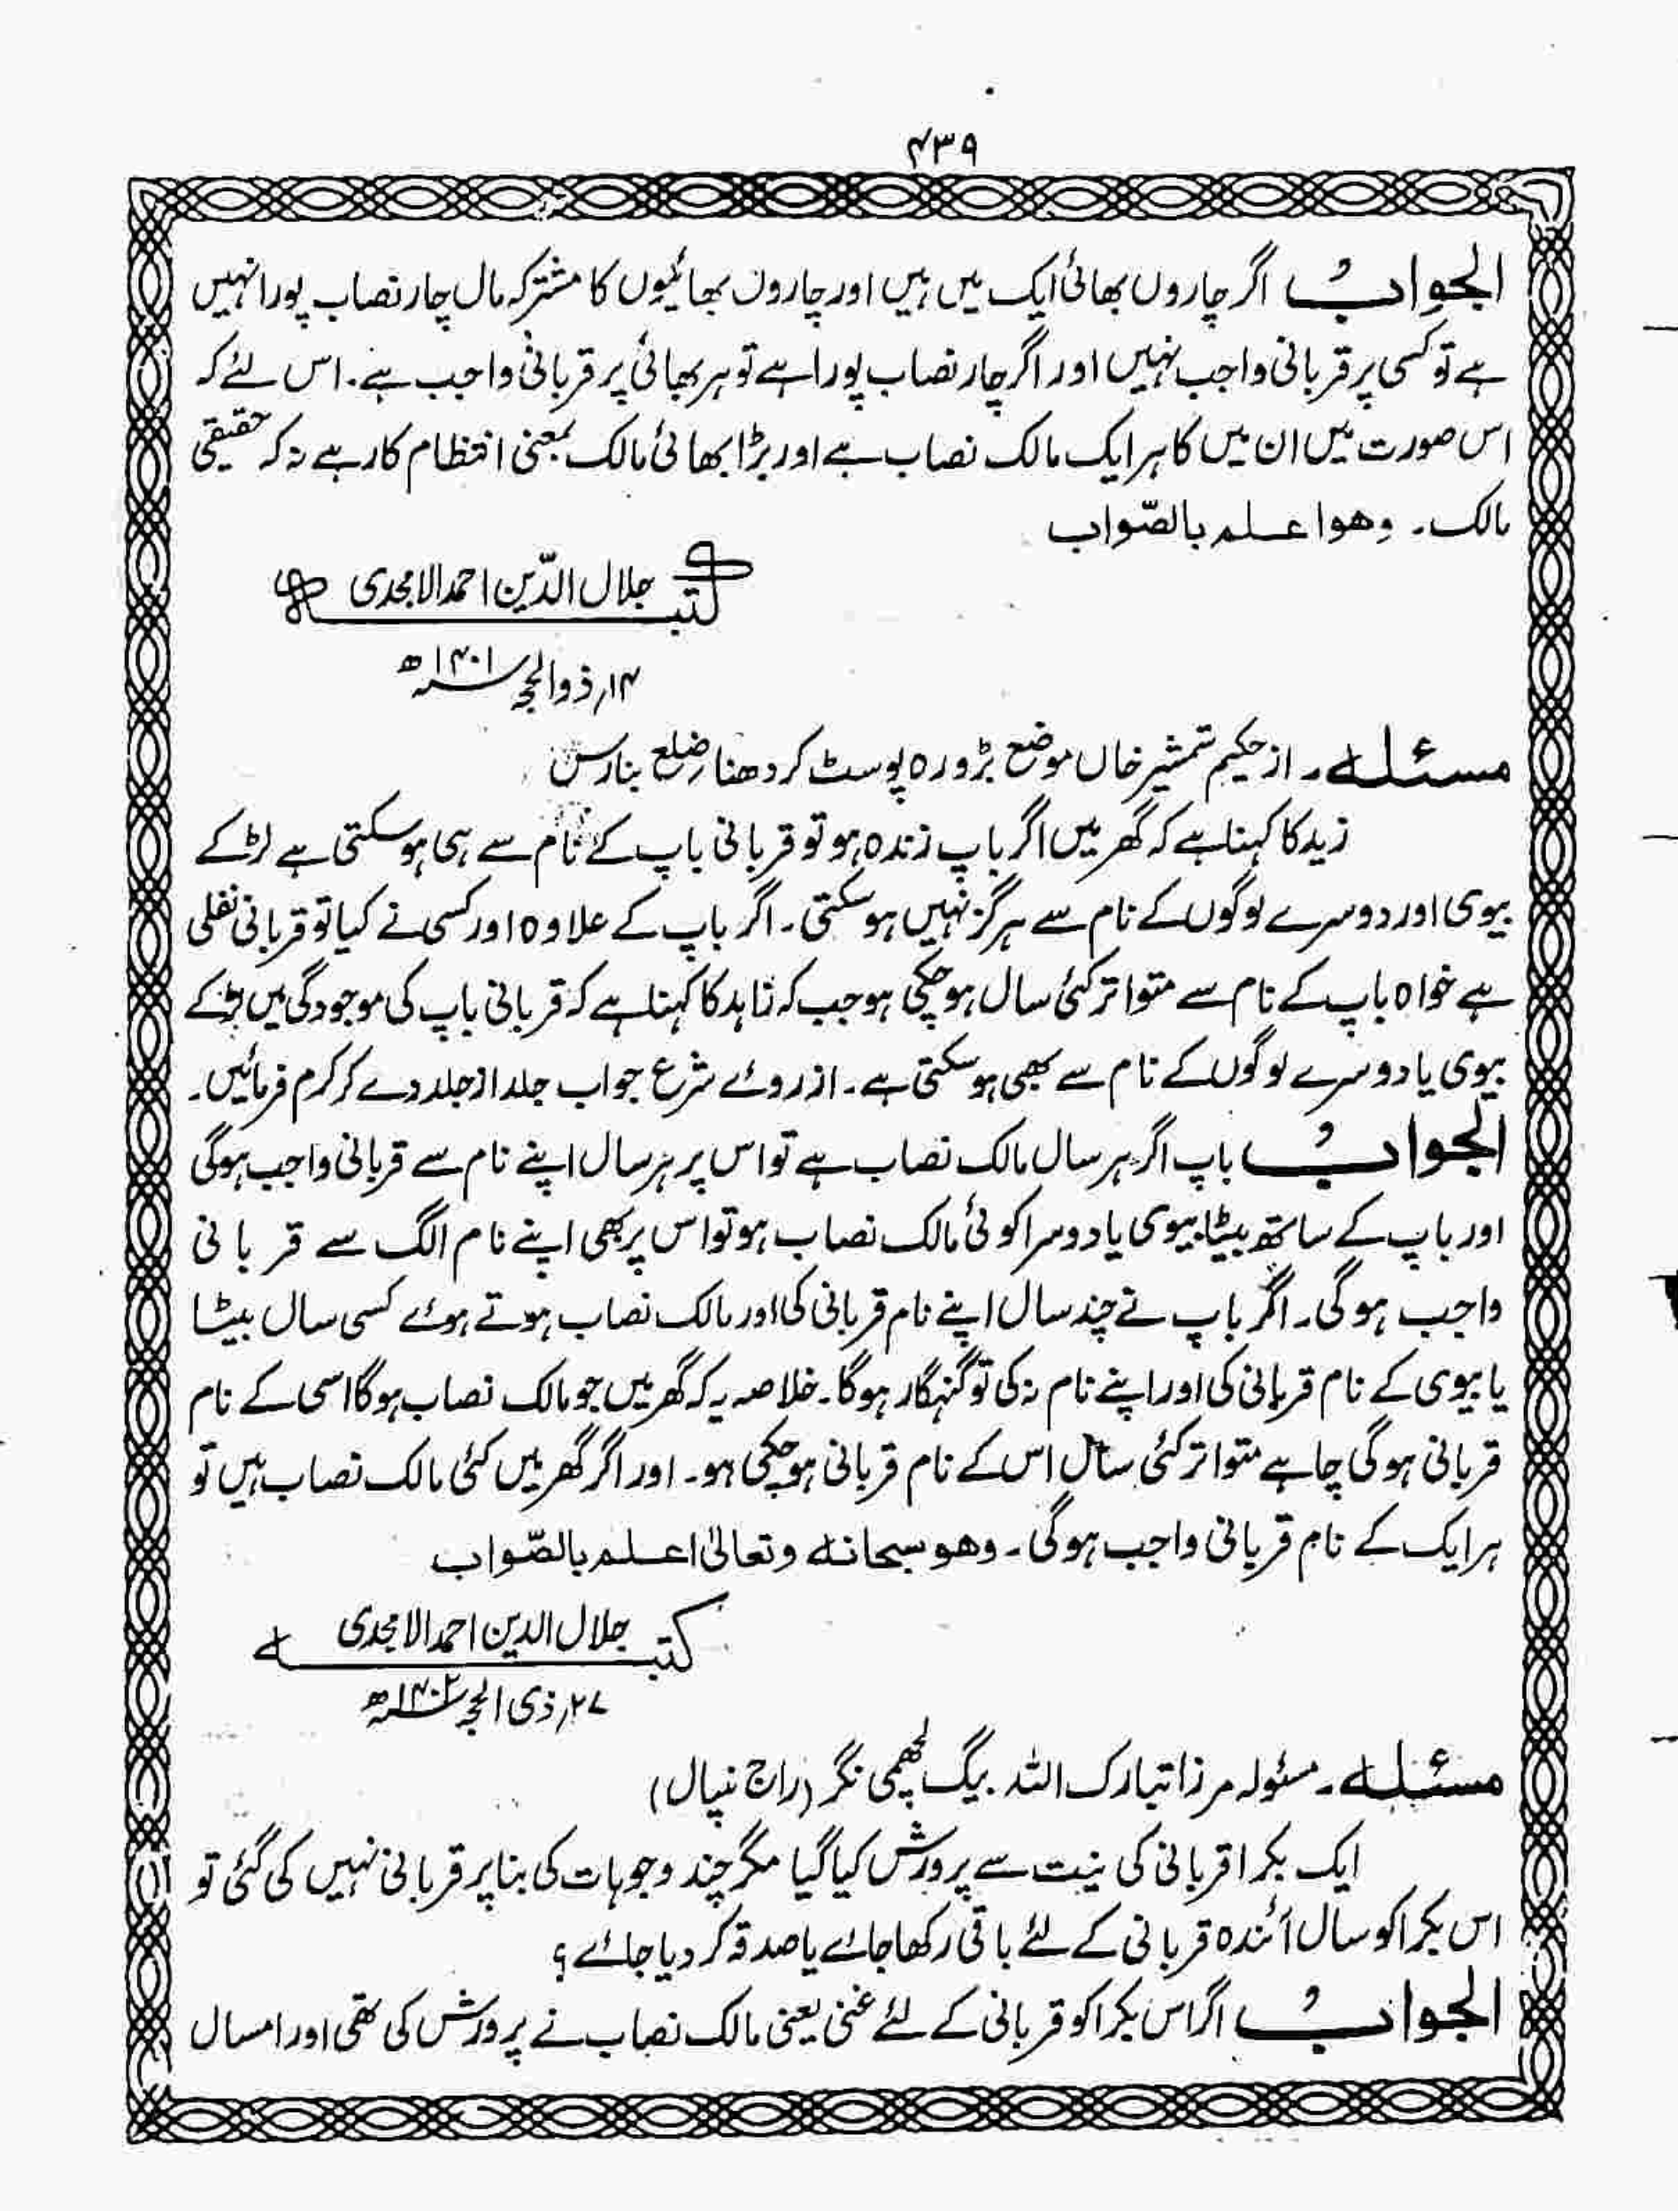 ۴۳۹
الجوابُ اگر چاروں بھائی ایک میں ہیں اور چاروں بھائیوں کا مشترکہ مال چار نصاب پورا نہیں
ہے تو کسی پر قربانی واجب نہیں اور اگر چار نصاب پورا ہے تو ہر بھائی پر قربانی واجب ہے۔ اس لئے کہ
اس صورت میں ان میں کا ہر ایک مالک نصاب ہے اور بڑا بھائی مالک بمعنی انتظام کار ہے نہ کہ حقیقی
مالک۔ وھو اعلم بالصّواب
کتبہ جلال الدّین احمد الامجدی
۱۴؍ ذوالحجہ ۱۴۰۱ھ
مسئلہ۔ از حکیم شمشیر خاں موضع بڑورہ پوسٹ کردھنا ضلع بنارس
زید کا کہنا ہے کہ گھر میں اگر باپ زندہ ہو تو قربانی باپ کے نام سے ہی ہو سکتی ہے لڑکے
بیوی اور دوسرے لوگوں کے نام سے ہرگز نہیں ہو سکتی۔ اگر باپ کے علاوہ اور کسی نے کیا تو قربانی نفلی
ہے خواہ باپ کے نام سے متواتر کئی سال ہو چکی ہو جب کہ زاہد کا کہنا ہے کہ قربانی باپ کی موجودگی میں لڑکے
بیوی یا دوسرے لوگوں کے نام سے بھی ہو سکتی ہے۔ ازروئے شرع جواب جلد از جلد دے کر کرم فرمائیں۔
الجوابُ باپ اگر ہر سال مالک نصاب ہے تو اس پر ہر سال اپنے نام سے قربانی واجب ہوگی
اور باپ کے ساتھ بیٹا بیوی یا دوسرا کوئی مالک نصاب ہو تو اس پر بھی اپنے نام الگ سے قربانی
واجب ہوگی۔ اگر باپ نے چند سال اپنے نام قربانی کی اور مالک نصاب ہوتے ہوئے کسی سال بیٹا
یا بیوی کے نام قربانی کی اور اپنے نام نہ کی تو گنہگار ہوگا۔ خلاصہ یہ کہ گھر میں جو مالک نصاب ہوگا اسی کے نام
قربانی ہوگی چاہے متواتر کئی سال اس کے نام قربانی ہو چکی ہو۔ اور اگر گھر میں کئی مالک نصاب ہیں تو
ہر ایک کے نام قربانی واجب ہوگی۔ وھو سبحانہ وتعالیٰ اعلم بالصّواب
کتبہ جلال الدین احمد الامجدی
۲۷؍ ذی الحجہ ۱۴۰۲ھ
مسئلہ۔ مسئولہ مرزا تبارک اللہ بیگ لچھمی نگر (راج نیپال)
ایک بکرا قربانی کی نیت سے پرورش کیا گیا مگر چند وجوہات کی بنا پر قربانی نہیں کی گئی تو
اس بکرا کو سال آئندہ قربانی کے لئے باقی رکھا جائے یا صدقہ کر دیا جائے؟
الجوابُ اگر اس بکرا کو قربانی کے لئے غنی یعنی مالک نصاب نے پرورش کی تھی اور امسال